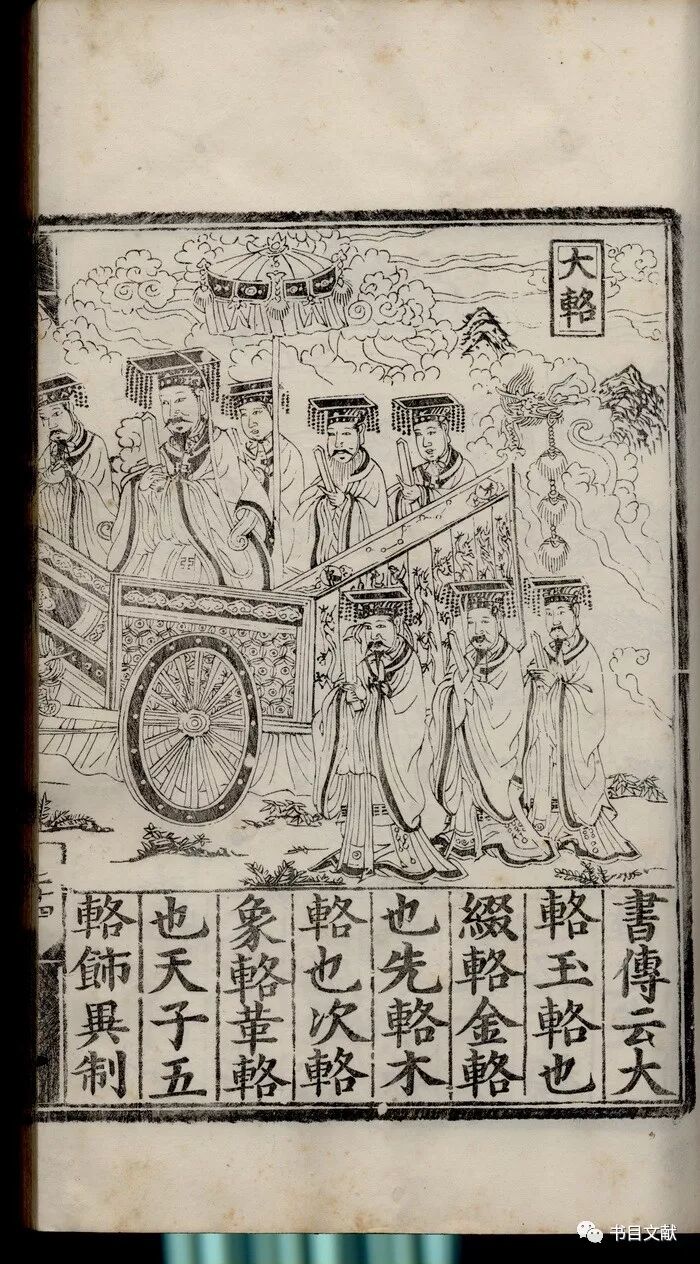 大輅
書傳云大
輅玉輅也
綴輅金輅
也先輅木
輅也次輅
象輅革輅
也天子五
輅飾異制
书目文献